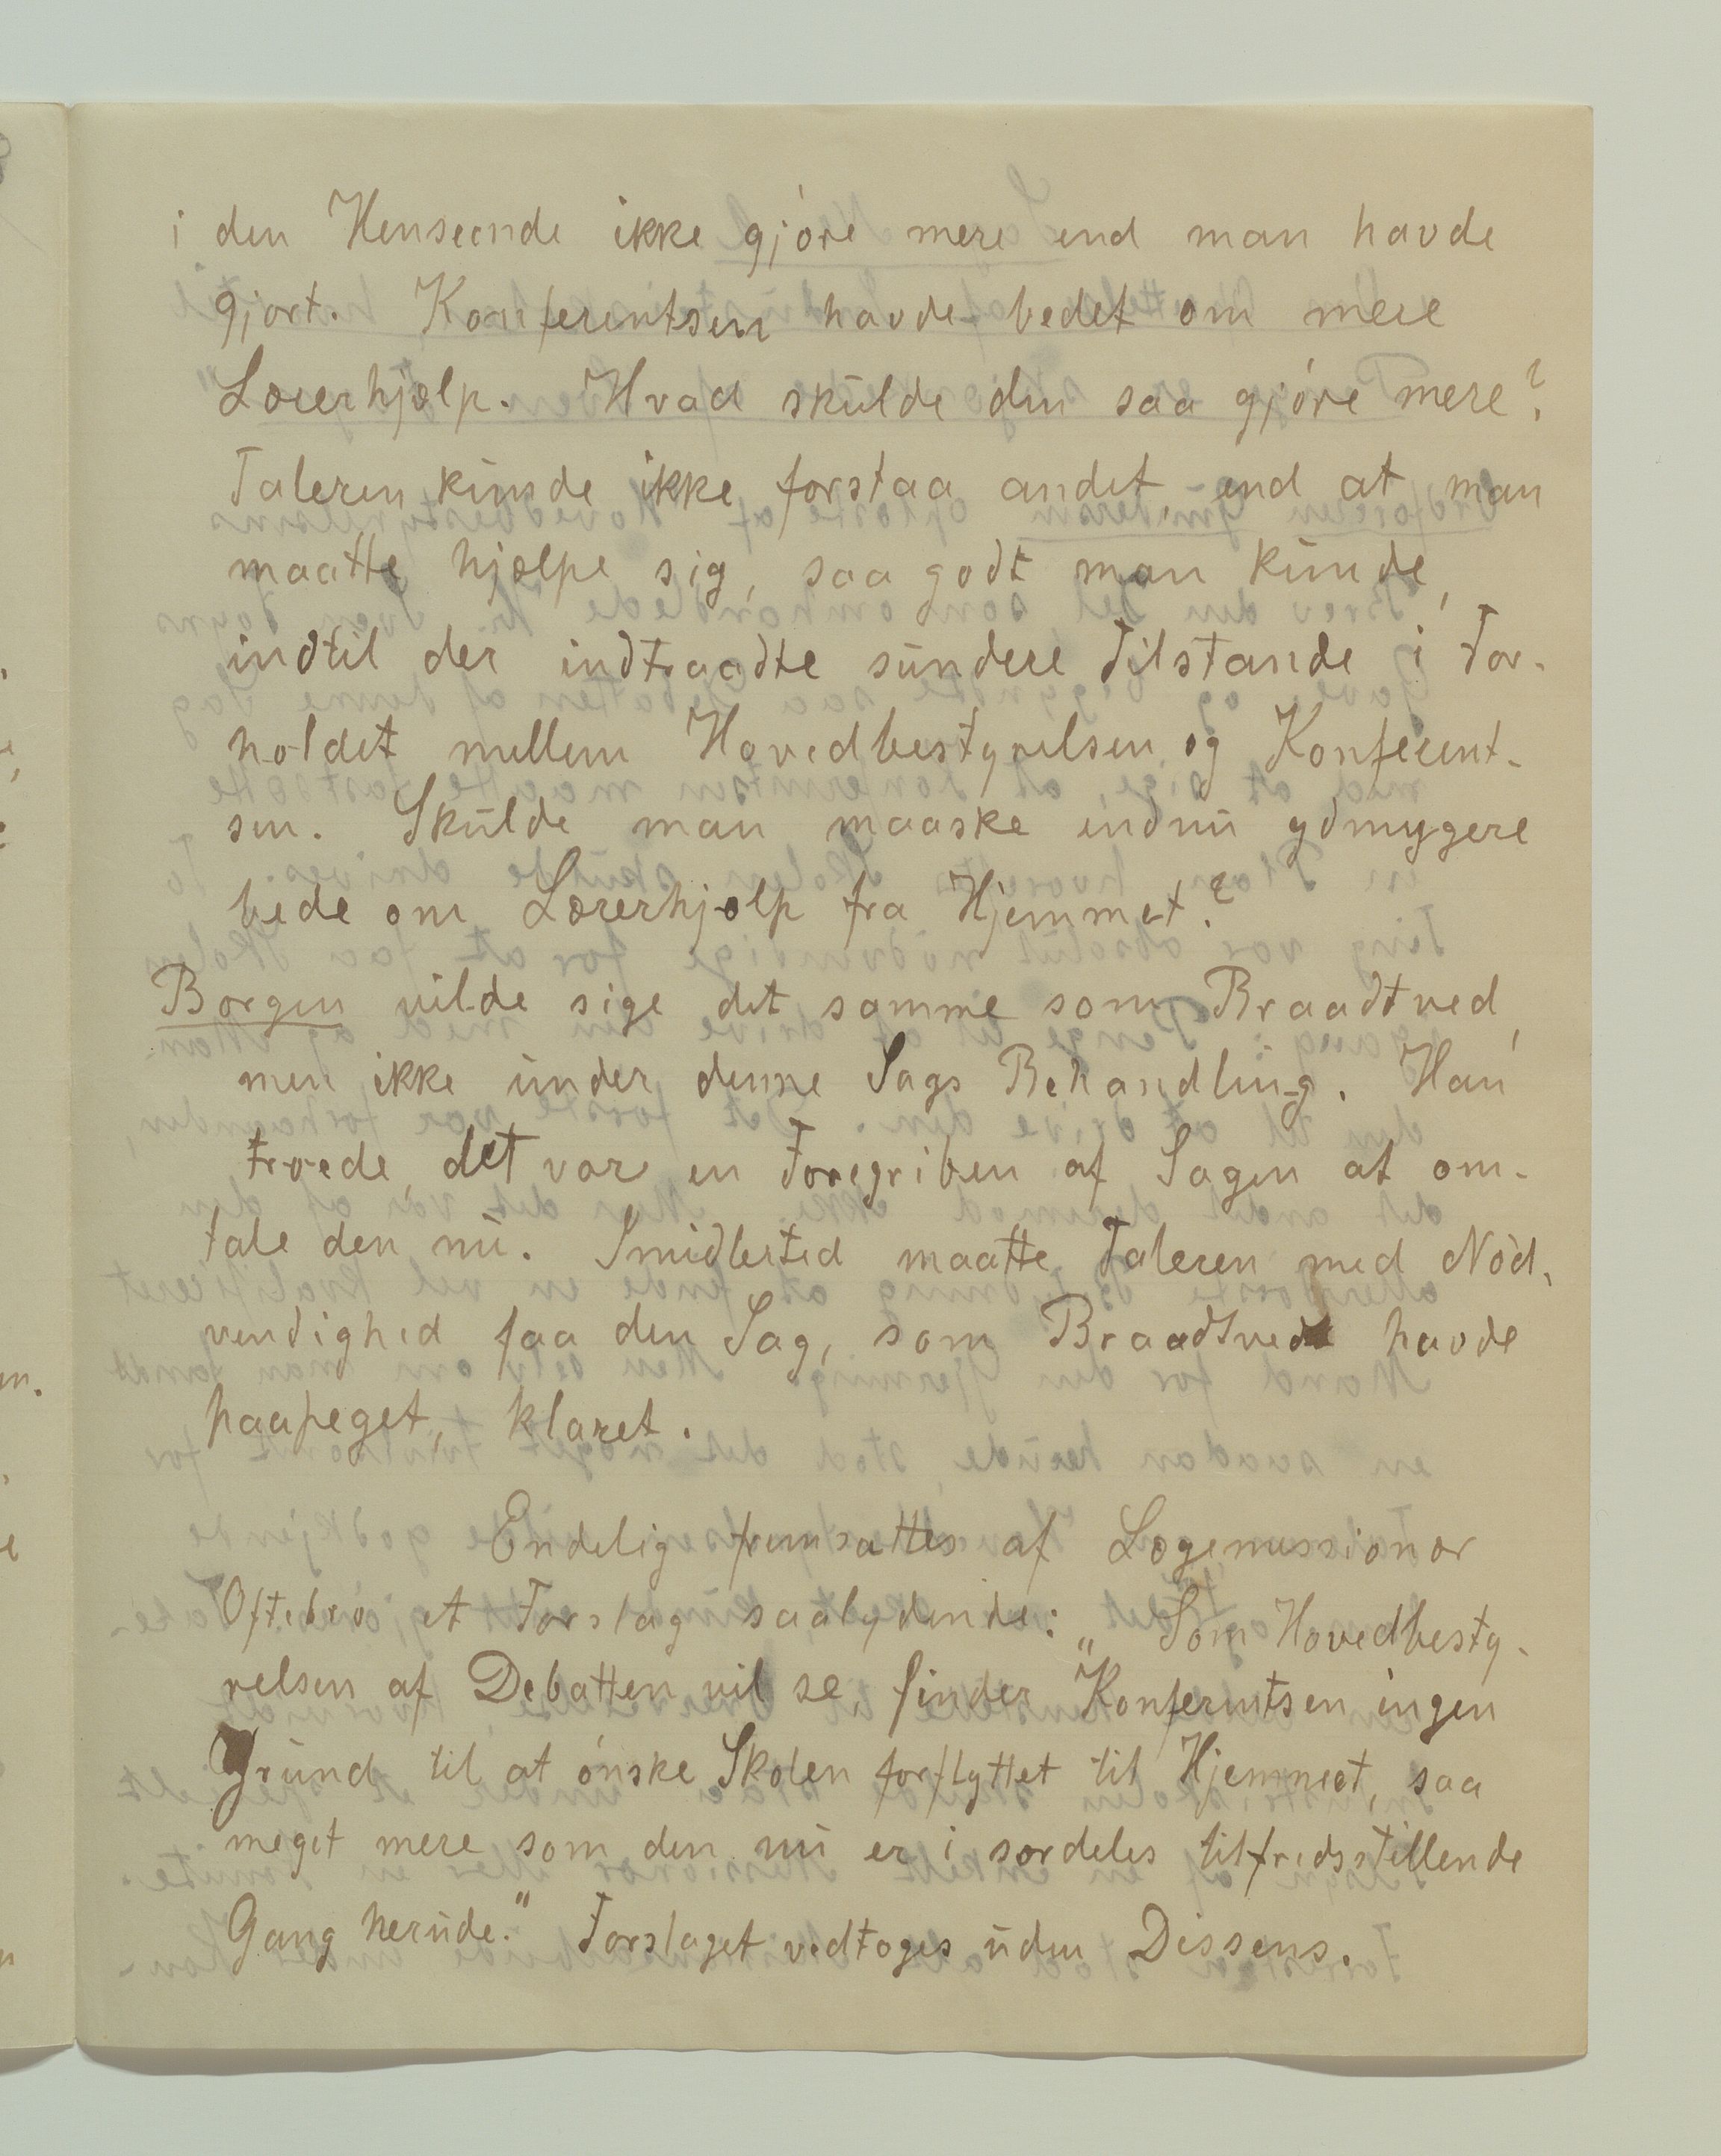 i den Henseende ikke gjøre mere end man havde
gjort. Konferentsen havde bedet om mere
Lærerhjælp. Hvad skulde den saa gjøre mere?
Taleren kunde ikke forstaa andet, end at man
maatte hjælpe sig, saa godt man kunde,
indtil der indtraadte sundere Tilstande i For-
holdet mellem Hovedbestyrelsen og Konferent-
sen. Skulde man maaske endnu ydmygere
bede om Lærerhjælp fra Hjemmet?
Borgen vilde sige det samme som Braadtved,
men ikke under denne Sags Behandling. Han
troede, det var en Foregriben af Sagen at om-
tale den nu. Imidlertid maatte Taleren med Nød-
vendighed faa den Sag, som Braadtvedt havde
paapeget, klaret.
Endelig fremsattes af Lægemissionær
Oftebro et Forslag saalydende: „Som Hovedbesty-
relsen af Debatten vil se, finder Konferentsen ingen
Grund til at ønske Skolen forflyttet til Hjemmet, saa
meget mere som den nu er i særdeles tilfredsstillende
Gang herude.“ Forslaget vedtoges uden Dissens.